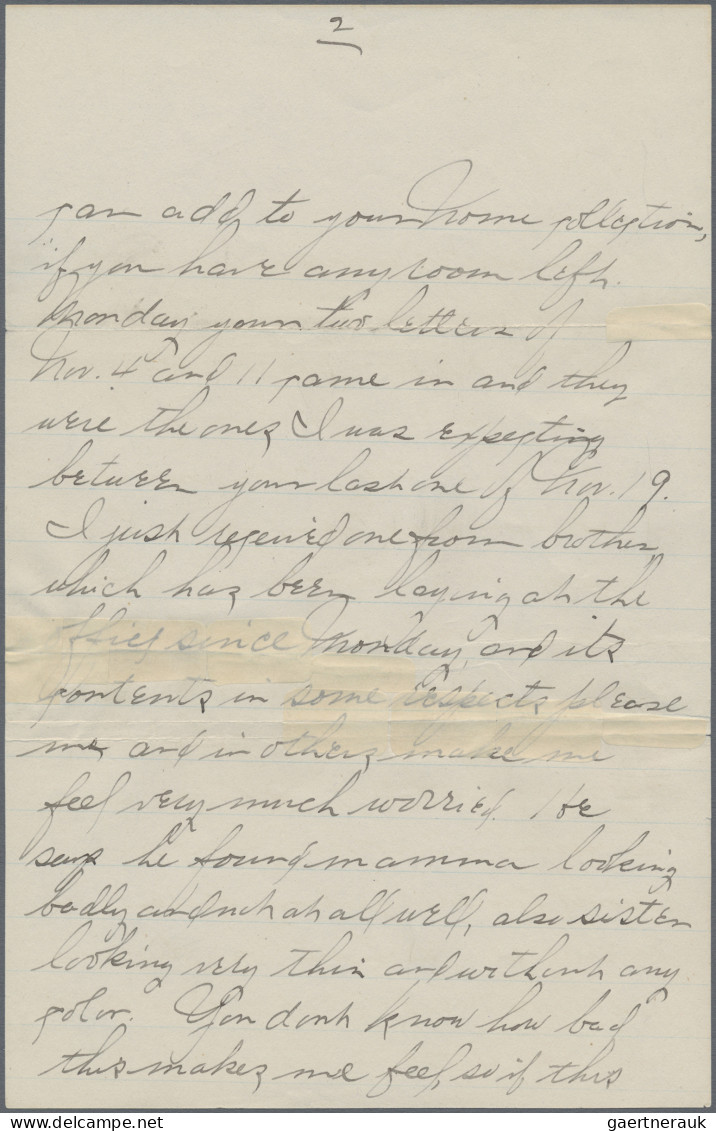 2
can add to your Nome collection,
if you have any room left.
Monday your two letters of
Nov. 4 and 11 came in and they
were the ones I was expecting
between your last one of Nov. 19.
I just received one from brother,
which has been laying at the
office since Monday, and its
contents in some respects please
me and in others make me
feel very much worried. He
says he found mamma looking
badly and not at all well, also sister
looking very thin and without any
color. You dont know how bad
this makes me feel, so if this
gaertnerauk